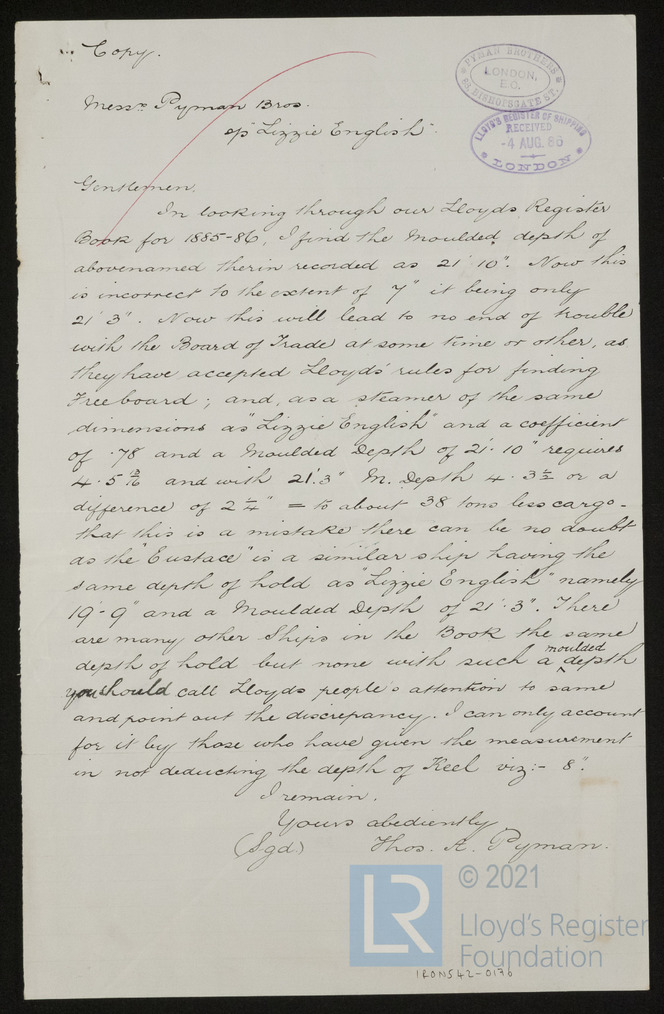 Copy.
PYMAN BROTHERS
LONDON,
E.C.
BISHOPSGATE ST.
LLOYD'S REGISTER OF SHIPPING
RECEIVED
-4 AUG. 86
LONDON
Messrs Pyman Bros.
s/s "Lizzie English".
Gentlemen.
In looking through our Lloyds Register
Book for 1885-86, I find the Moulded depth of
abovenamed therin recorded as 21' 10". Now this
is incorrect to the extent of 7" it being only
21' 3". Now this will lead to no end of trouble
with the Board of Trade at some time or other, as
they have accepted Lloyds rules for finding
Freeboard; and, as a steamer of the same
dimensions as "Lizzie English" and a coefficient
of .78 and a Moulded Depth of 21.10" requires
4.5 and with 21'.3" M. Depth 4.3 or a
difference of 2 " = to about 38 tons less cargo-
that this is a mistake there can be no doubt
as the "Eustace" is a similar ship having the
same depth of hold as "Lizzie English" namely
19'-9" and a Moulded Depth of 21'.3". There
are many other Ships in the Book the same
depth of hold but none with such a moulded depth
you should call Lloyds people's attention to same
and point out the discrepancy. I can only account
for it by those who have given the measurement
in not deducting the depth of Keel viz:- 8".
I remain.
Yours abediently
(Sgd.) Thos. A. Pyman.
LR
© 2021
Lloyd's Register
Foundation
IRONS42-0176